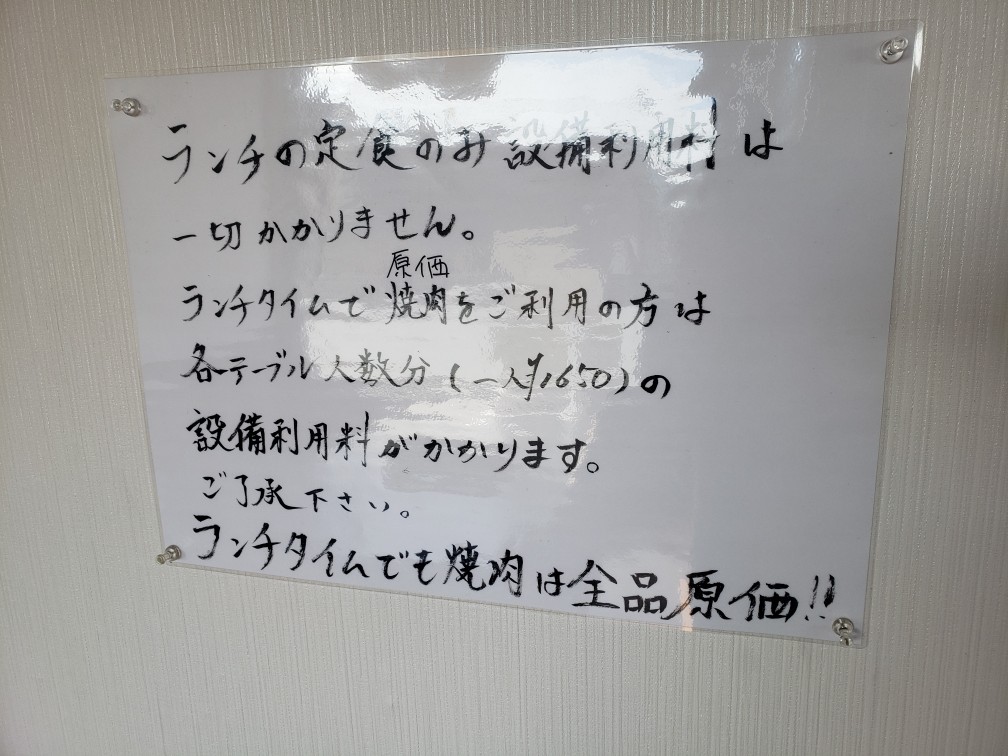 ランチの定食のみ設備利用料は
一切かかりません。
原価
ランチタイムで焼肉をご利用の方は
各テーブル人数分(一人¥1650)の
設備利用料がかかります。
ご了承下さい。
ランチタイムでも焼肉は全品原価!!